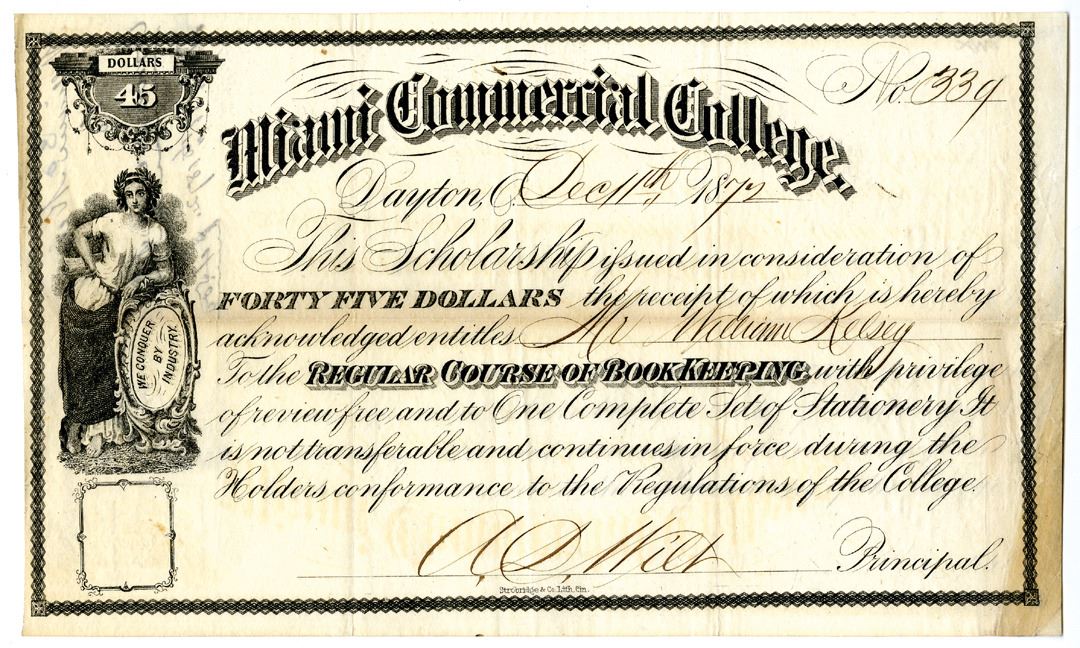 DOLLARS
45
No. 339
Miami Commercial College.
Dayton, O. Dec 11th, 1872
This Scholarship issued in consideration of
FORTY FIVE DOLLARS the receipt of which is hereby
acknowledged entitles Mr William Kelsey
To the REGULAR COURSE OF BOOKKEEPING with privilege
of review free, and to One Complete Set of Stationery It
is not transferable and continues in force during the
Holders conformance to the Regulations of the College.
WE CONQUER
BY
INDUSTRY.
A. D. Wilt Principal.
Strobridge & Co. Lith. Cin.